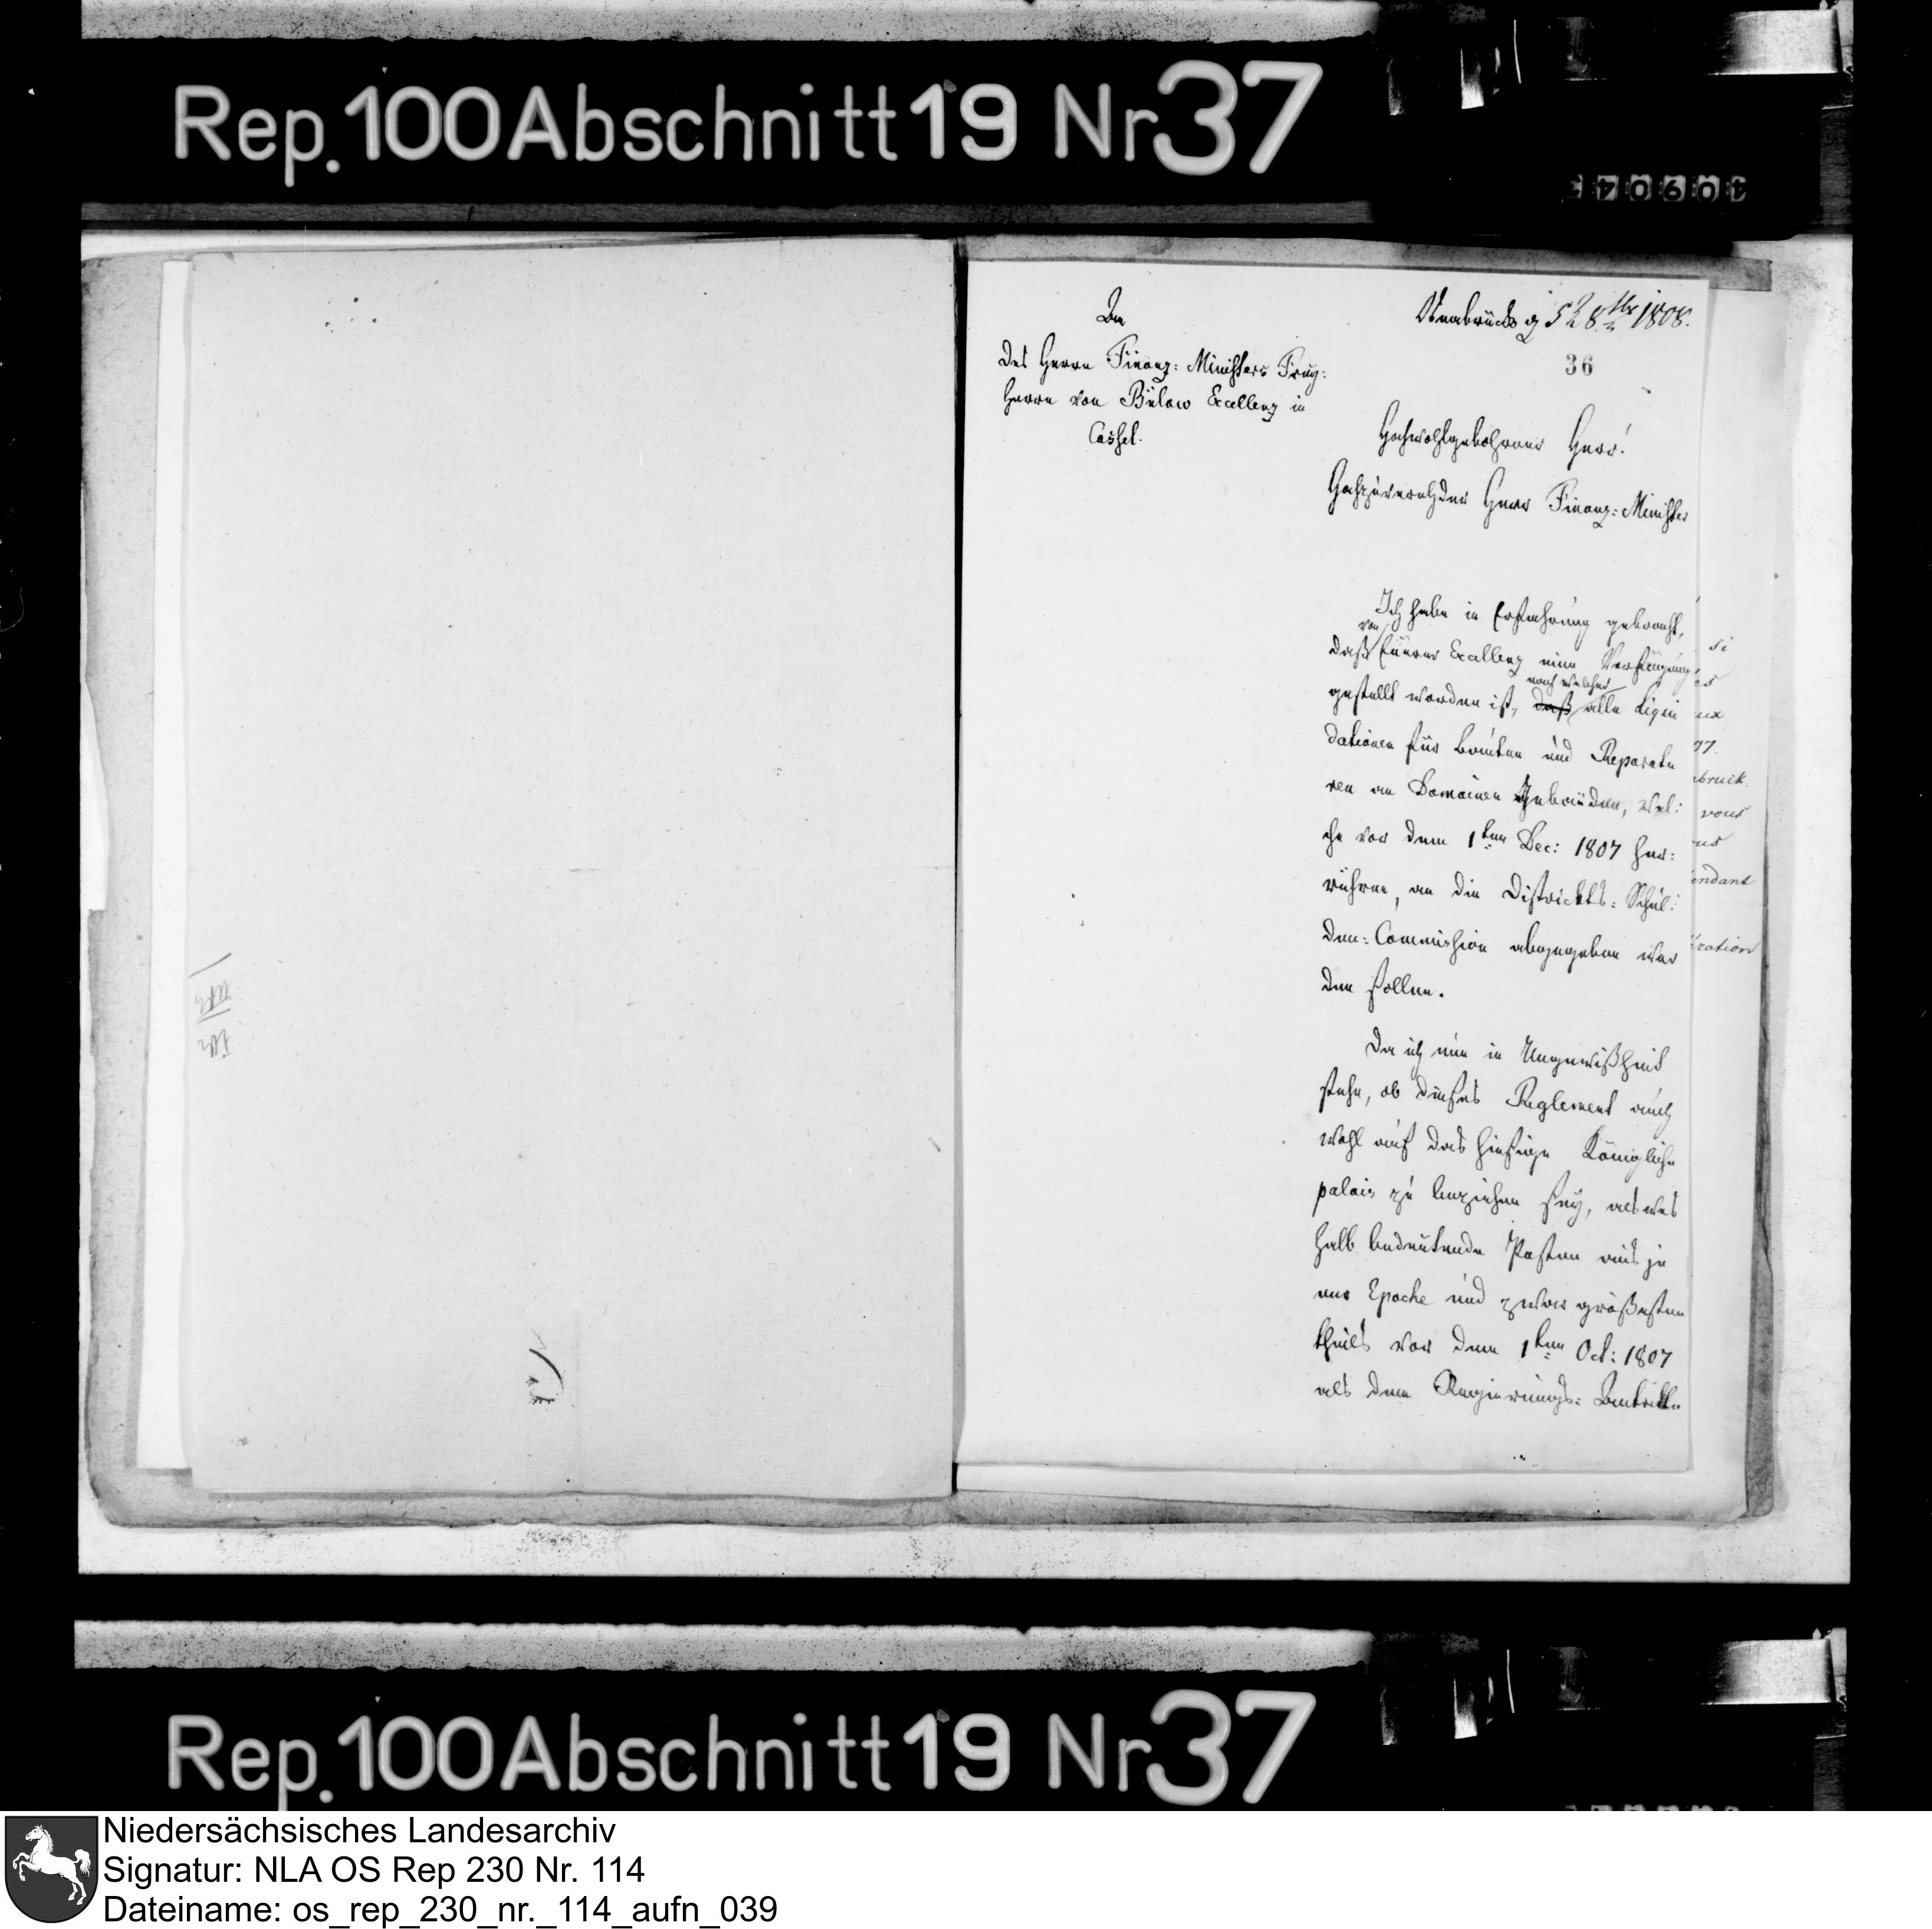 Rep. 100 Abschnitt 19 Nr 37
An
des Herrn Finanz: Ministers Frey:
herrn von Bülow Excellenz in
Cassel.
Osnabrück 8br 1808.
36
Hochwohlgebohrner Herr!
Hochzuverehrender Herr Finanz: Minister
Ich habe in Erfahrung gebracht,
von
daß Euerer Excellenz eine Verfügung
nach welcher
gestellt worden ist, daß alle Liqui
dationen für Bauten und Reparatu
ren an Domainen Gebäuden, wel:
che vor dem 1ten Dec: 1807 her:
rühren, an die Districkts: Schul:
den: Commission abgegeben wer
den sollen.
Da ich nun in Ungewißheit
stehe, ob dieses Reglement auch
wohl auf das hiesige Königliche
palais zu beziehen sey, als wes
halb bedeutende Posten aus je
ner Epoche und zwar größesten
theils vor dem 1ten Oct: 1807
als dem Regierungs: Antritte
si
es
aux
07.
bruck
vous
us
endant
ération
Rep. 100 Abschnitt 19 Nr 37
Niedersächsisches Landesarchiv
Signatur: NLA OS Rep 230 Nr. 114
Dateiname: os_rep_230_nr._114_aufn_039